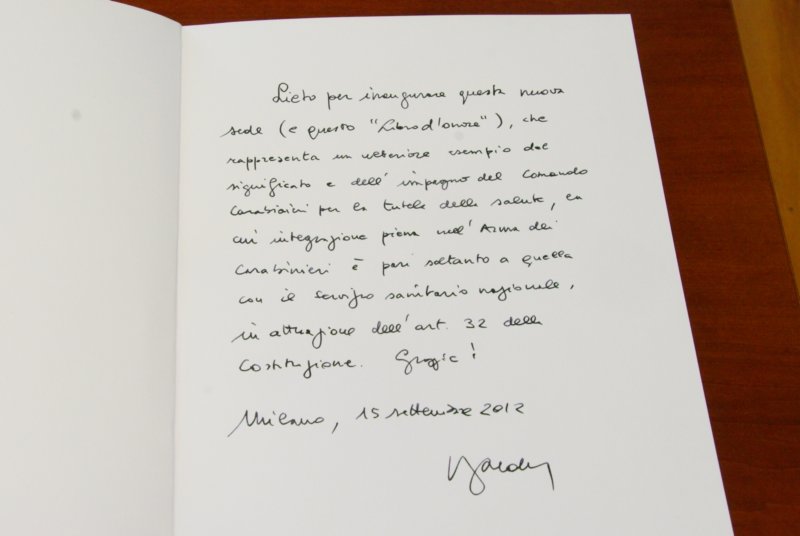 Lieto per inaugurare questa nuova
sede (e questo "Libro d'onore"), che
rappresenta un ulteriore esempio del
significato e dell'impegno del Comando
Carabinieri per la tutela della salute, la
cui integrazione piena nell'Arma dei
Carabinieri è pari soltanto a quella
con il servizio sanitario nazionale,
in attuazione dell'art. 32 della
Costituzione. Grazie!
Milano, 15 settembre 2012